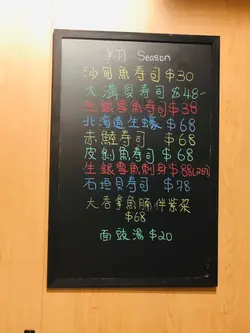 Season
沙甸魚壽司$30
大溏貝壽司$48-
生銀雪魚壽司$38
北海道生蠔 $68
赤鯥壽司 $68
皮剝魚壽司 $68
生銀雪魚刺身$88(2切)
石垣貝壽司 $78
大吞拿魚腩伴紫菜
$68
面豉湯$20